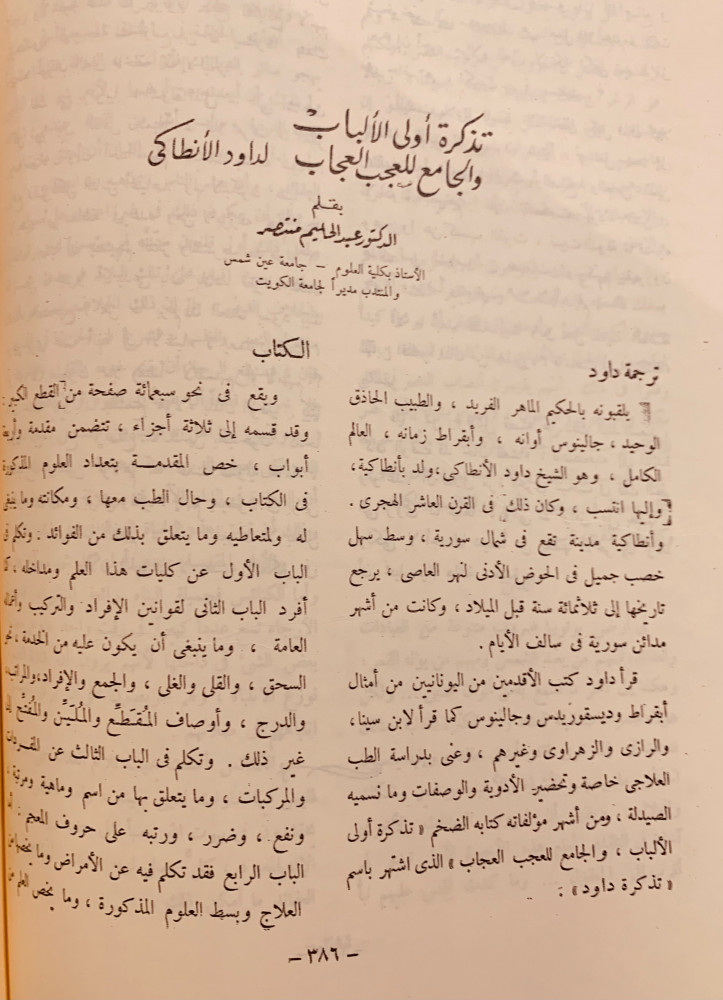 تذكرة أولى الألباب
والجامع للعجب العجاب لداود الأنطاكى
بقلم
الدكتور عبد الحليم منتصر
الأستاذ بكلية العلوم – جامعة عين شمس
والمنتدب مديراً لجامعة الكويت
ترجمة داود
يلقبونه بالحكيم الماهر الفريد ، والطبيب الحاذق
الوحيد ، جالينوس أوانه ، وأبقراط زمانه ، العالم
الكامل ، وهو الشيخ داود الأنطاكى ، ولد بأنطاكية،
وإليها انتسب ، وكان ذلك فى القرن العاشر الهجرى .
وأنطاكية مدينة تقع فى شمال سورية ، وسط سهل
خصب جميل فى الحوض الأدنى لنهر العاصى ، يرجع
تاريخها إلى ثلاثمائة سنة قبل الميلاد ، وكانت من أشهر
مدائن سورية فى سالف الأيام .
قرأ داود كتب الأقدمين من اليونانيين من أمثال
أبقراط وديسقوريدس وجالينوس كما قرأ لابن سينا،
والرازى والزهراوى وغيرهم ، وعنى بدراسة الطب
العلاجى خاصة وتحضير الأدوية والوصفات وما نسميه
الصيدلة ، ومن أشهر مؤلفاته كتابه الضخم « تذكرة أولى
الألباب ، والجامع للعجب العجاب » الذى اشتهر باسم
« تذكرة داود » .
الكتاب
ويقع فى نحو سبعمائة صفحة من القطع الكبير .
وقد قسمه إلى ثلاثة أجزاء ، تتضمن مقدمة وأربعة
أبواب ، خص المقدمة بتعداد العلوم المذكورة
فى الكتاب ، وحال الطب معها ، ومكانته وما ينبغى
له ولمتعاطيه وما يتعلق بذلك من الفوائد . وتكلم فى
الباب الأول عن كليات هذا العلم ومداخله ،
أفرد الباب الثانى لقوانين الإفراد والتركيب وأعماله
العامة ، وما ينبغى أن يكون عليه من الخدمة ، نحو
السحق ، والقلى والغلى ، والجمع والإفراد، والمراتب
والدرج ، وأوصاف المُقَطِّع والمُلَيِّن والمُفَتِّح إلى
غير ذلك . وتكلم فى الباب الثالث عن المفردات
والمركبات ، وما يتعلق بها من اسم وماهية ومرتبة ،
ونفع ، وضرر ، ورتبه على حروف المعجم .
الباب الرابع فقد تكلم فيه عن الأمراض وما يخصها من
العلاج وبسط العلوم المذكورة ، وما يخص العلم من
– ٣٨٦ –